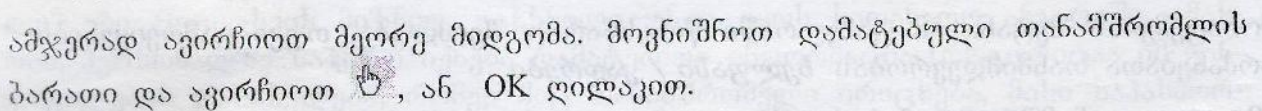 ამჯერად ავირჩიოთ მეორე მიდგომა. მოვნიშნოთ დამატებული თანამშრომლის
ბარათი და ავირჩიოთ , ან OK ღილაკით.